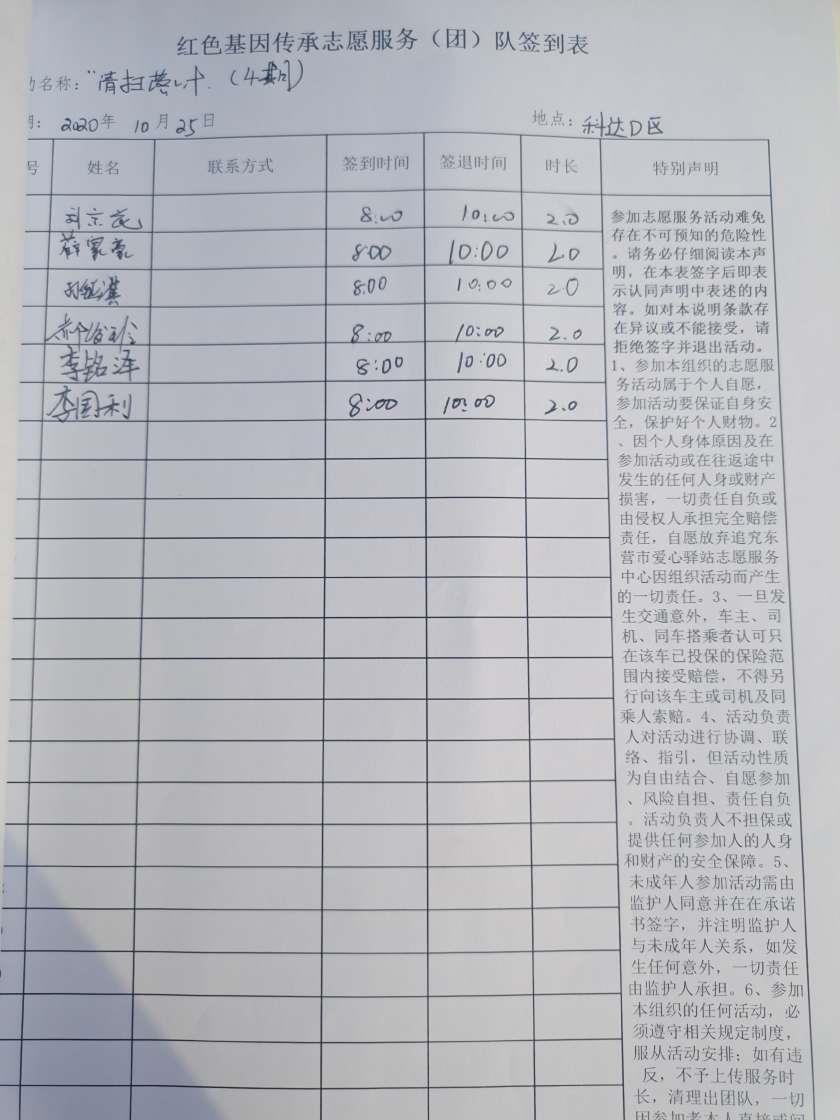 红色基因传承志愿服务（团）队签到表
动名称："清扫 （4期）
期： 2020年 10月25日 地点：科达D区
号 姓名 联系方式 签到时间 签退时间 时长 特别声明
8:00 10:00 2.0
8:00 10:00 2.0
8:00 10:00 2.0
8:00 10:00 2.0
李铭泽 8:00 10:00 2.0
李国利 8:00 10:00 2.0
参加志愿服务活动难免
存在不可预知的危险性
。请务必仔细阅读本声
明，在本表签字后即表
示认同声明中表述的内
容。如对本说明条款存
在异议或不能接受，请
拒绝签字并退出活动。
1、参加本组织的志愿服
务活动属于个人自愿，
参加活动要保证自身安
全，保护好个人财物。2
、因个人身体原因及在
参加活动或在往返途中
发生的任何人身或财产
损害，一切责任自负或
由侵权人承担完全赔偿
责任，自愿放弃追究东
营市爱心驿站志愿服务
中心因组织活动而产生
的一切责任。3、一旦发
生交通意外，车主、司
机、同车搭乘者认可只
在该车已投保的保险范
围内接受赔偿，不得另
行向该车主或司机及同
乘人索赔。4、活动负责
人对活动进行协调、联
络、指引，但活动性质
为自由结合、自愿参加
、风险自担、责任自负
。活动负责人不担保或
提供任何参加人的人身
和财产的安全保障。5、
未成年人参加活动需由
监护人同意并在在承诺
书签字，并注明监护人
与未成年人关系，如发
生任何意外，一切责任
由监护人承担。6、参加
本组织的任何活动，必
须遵守相关规定制度，
服从活动安排；如有违
反，不予上传服务时
长，清理出团队，一切
因参加者本人直接或间